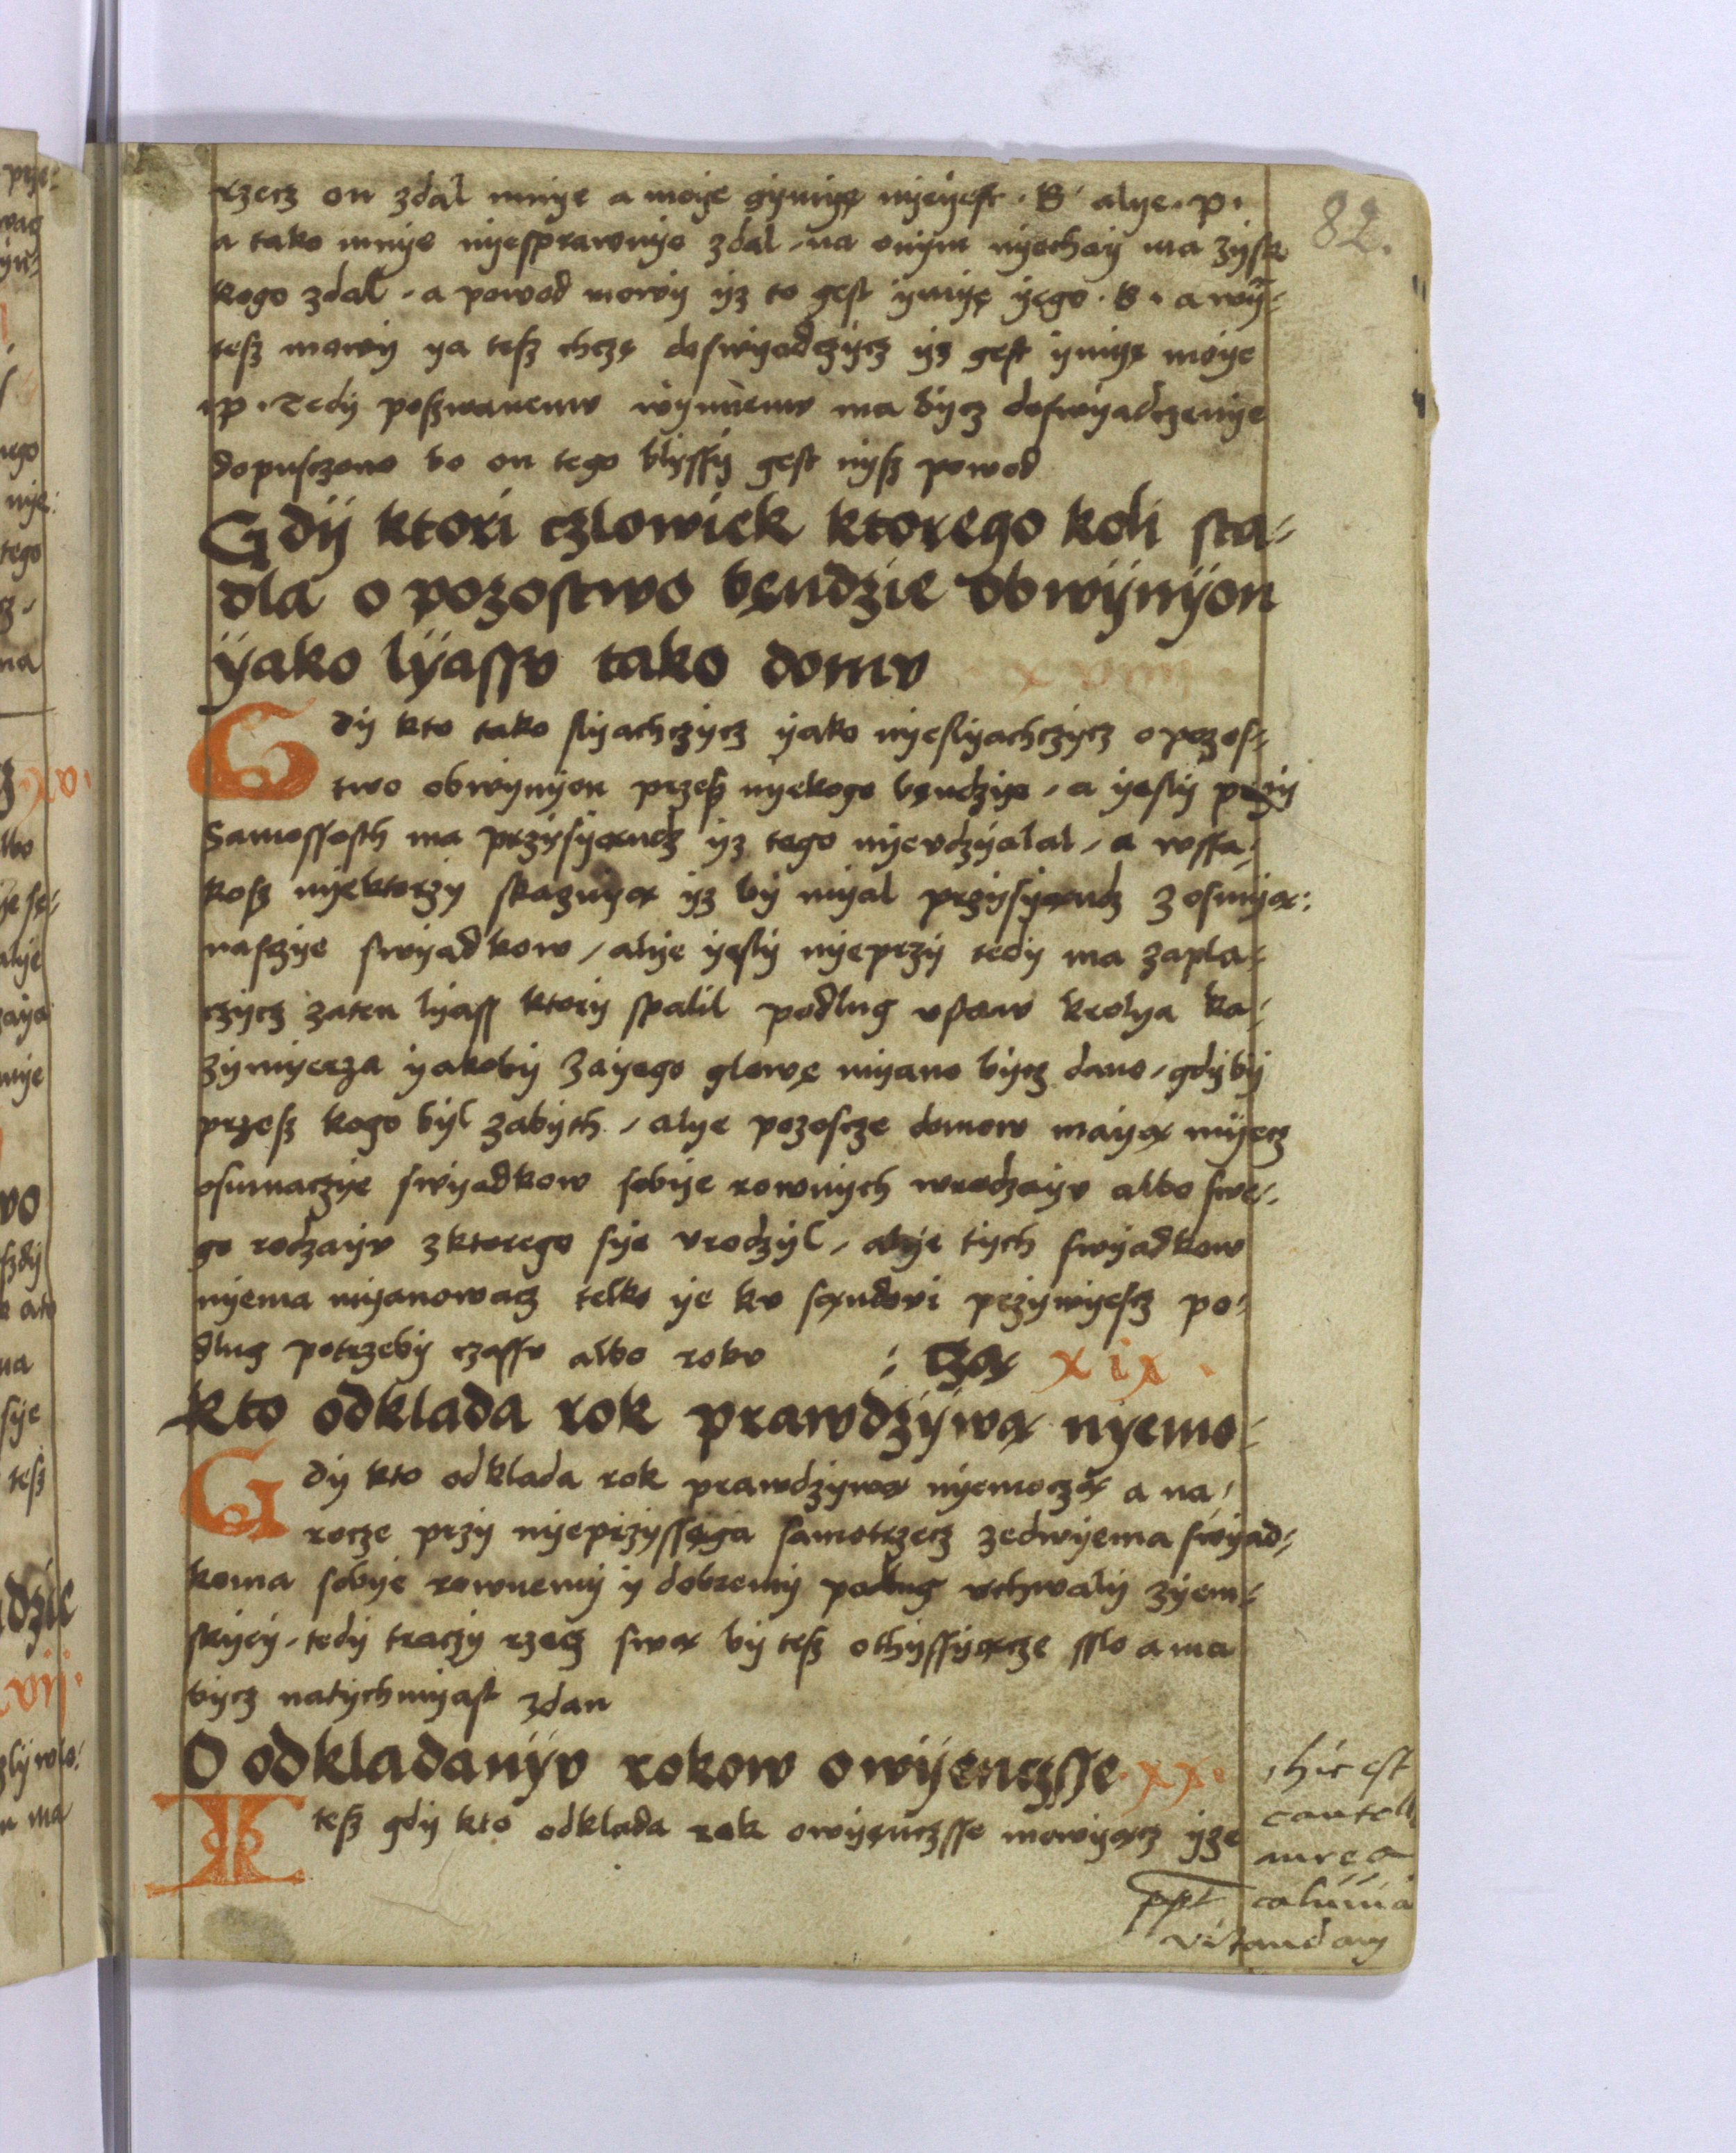 82.
rzecz on zdal mnye a moye gymyę nyeyest · B · alye · p ·
a tako mnye nyesprawnye zdal / na onym nyechay ma zysk
kogo zdal · a powod mowy yz to gest ymyę yego · B · a wÿ-
tesz mowy ya tesz chczę doswyadczycz yz gest ymyę moye
· p · Tedy poszwanemv wymnemv ma bycz doswyadczenye
dopusczono bo on tego blyssy gest nysz powod
Gdÿ ktori czlowiek ktorego koli sta-
dla o pozostwo będzie obwÿnÿon
ÿako lÿassv tako domv
Gdy kto tako slyachczycz yako nyeslyachczycz o pozos-
two obwynyon przesz nyekogo będzye / a yesly przy
Samossosth ma przysyąndz yz tego nyevdzyalal / a wssa-
kosz nyektorzy skazuyą yz by myal przysyąndz z osmyą:
nasczye swyadkow / alye yesly nyeprzy tedy ma zapla-
czycz zaten lyass ktory spalil podlug vstaw krolya ka-
zymyerza yakoby zayego glowę myano bycz dano / gdyby
przesz kogo byl zabyth / alye pozoscze domow mayą myecz
osmnaczye swyadkow sobye rownych wrodzayv albo swe-
go rodzayv z ktorego sye vrodzyl / alye tych swyadkow
nyema myanowacz telko ye kv sąndovi przywyescz po-
dlug potrzeby czassv albo rokv : czą xix ·
Kto odklada rok prawdzÿwą nyemo-
Gdy kto odklada rok prawdzywą nyemoczą a na-
rocze przy nyeprzyssęga samotrzecz zedwyema swyad-
koma sobye rownemy y dobremy podlug vchwaly zyem-
skyey / tedy traczy rzecz swą by tesz othyssyącze sslo a ma
bycz natychmyast zdan
O odkladanÿv rokow o wÿenczsse · xx ·
Itesz gdy kto odklada rok owyęnczsse mowyącz yze
hic est
cautela
aurea
ppt calumnia
vitandam